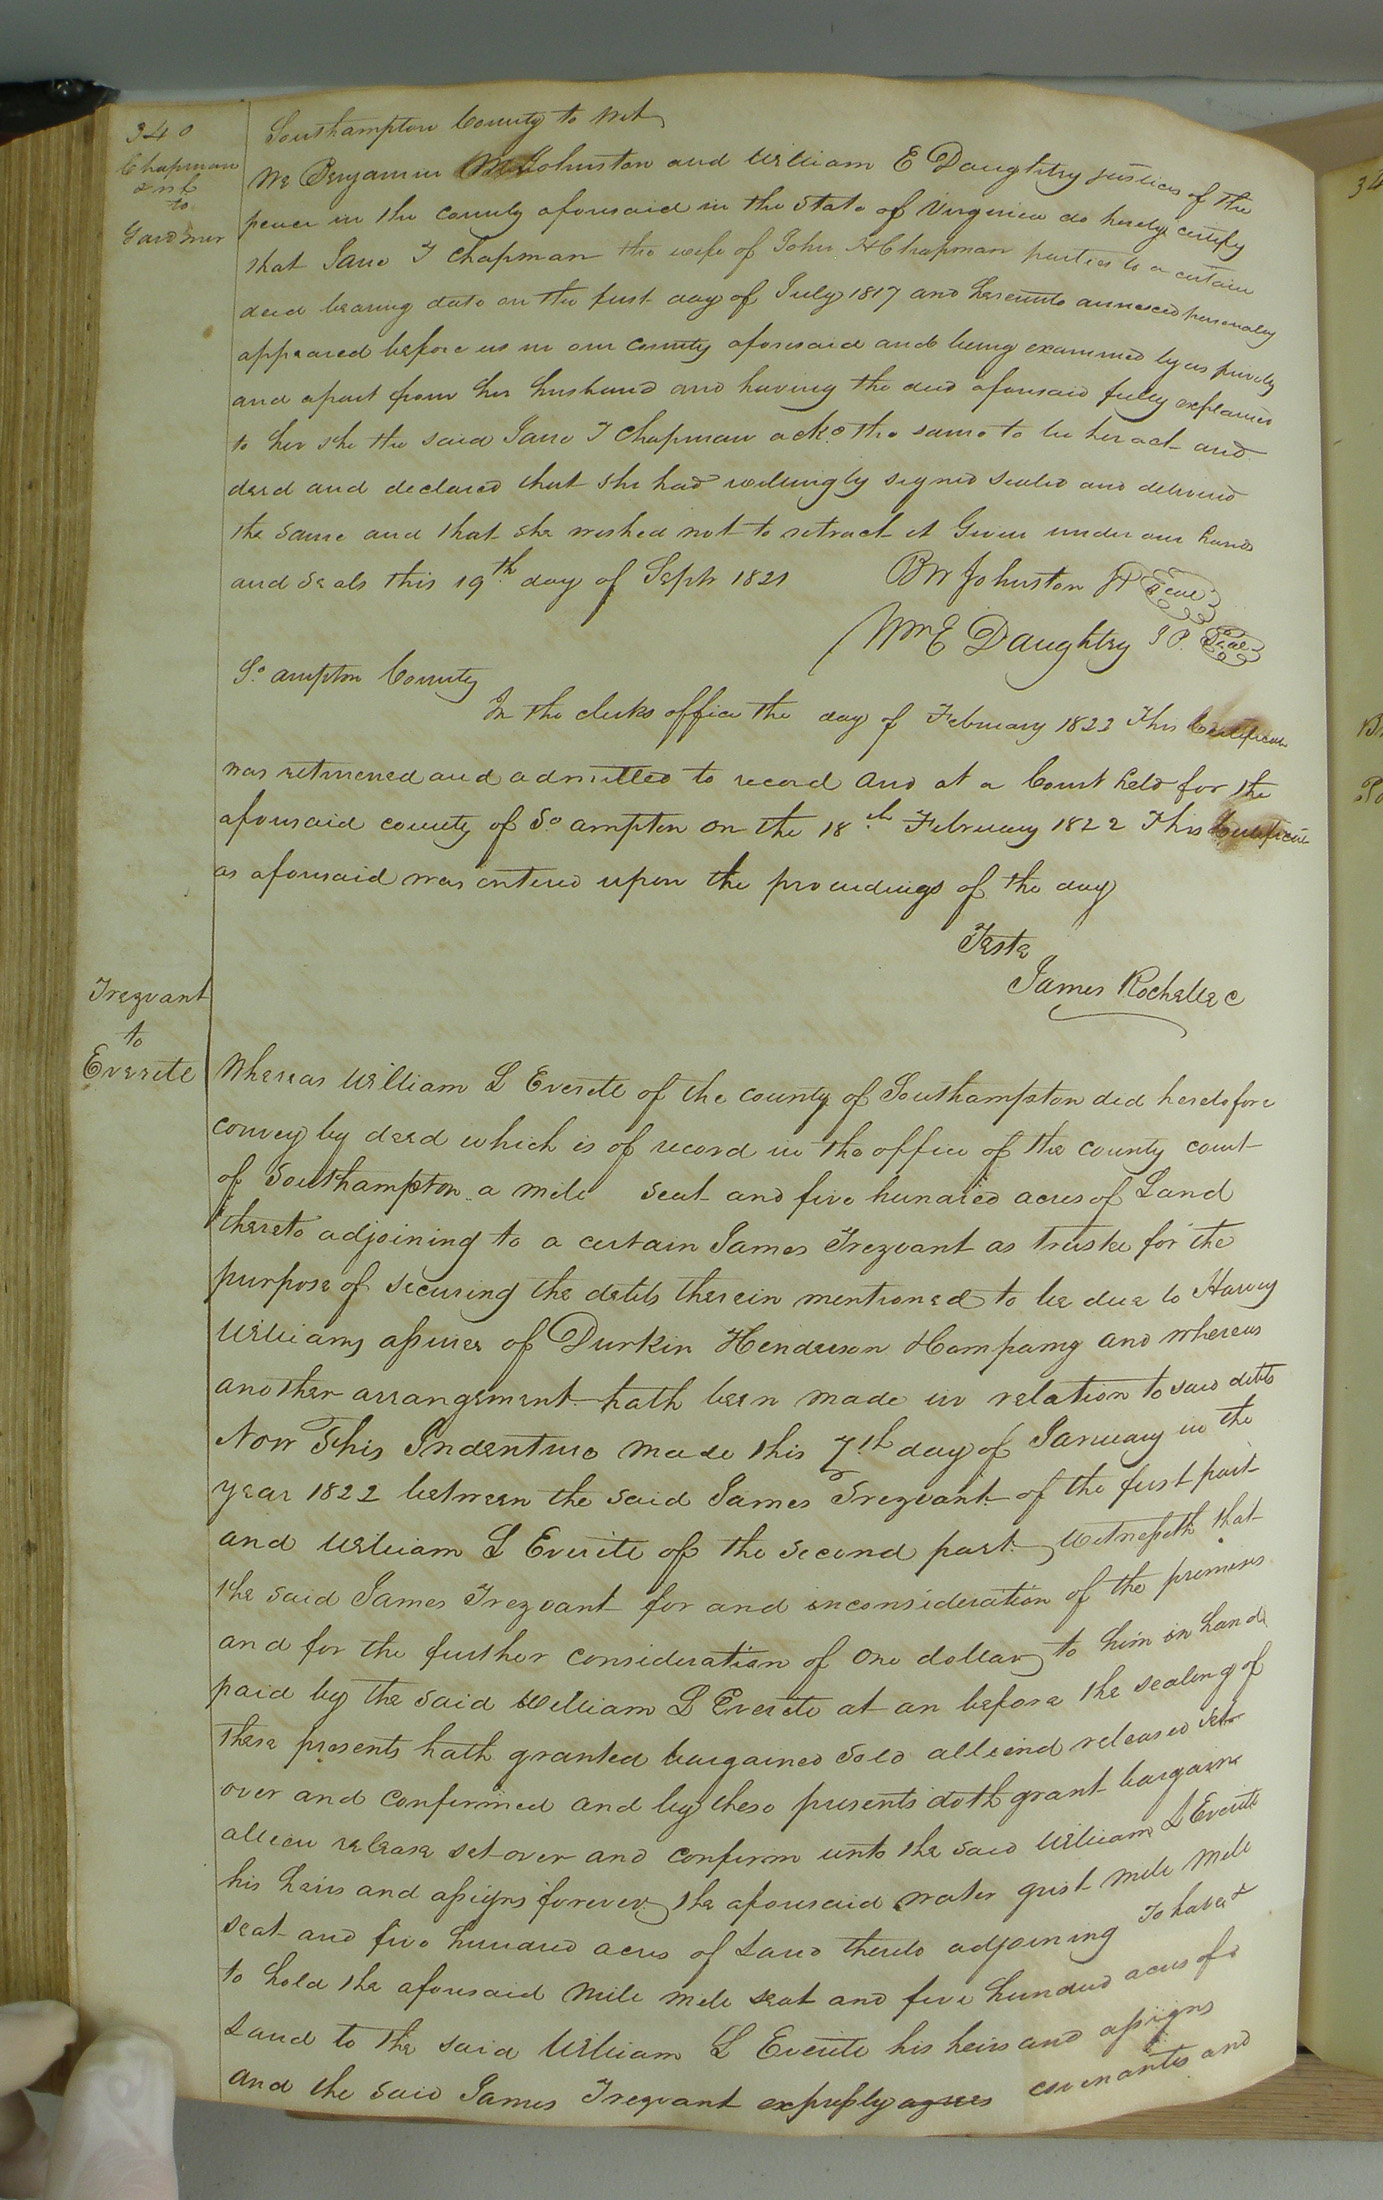 340
Chapman
to
Gardner
Southampton County to wit
We Benjamin W Johnston and William E Daughtry justices of the
peace in the county aforesaid in the State of Virginia do hereby certify
that Jane T Chapman the wife of John H Chapman parties to a certain
deed bearing date on the first day of July 1817 and hereunto annexed personaley
appeared before us in our county aforesaid and being examined by us privily
and apart from her husband and having the deed aforesaid fully explained
to her she the said Jane T Chapman ackd the same to be her act and
deed and declared that she had willingly signed sealed and delivered
the same and that she wished not to retract it Given under our hands
and seals this 19th day of Septr 1821 BW Johnston JP Seal
Wm E Daughtry JP. Seal
So ampton County
In the clerks office the day of February 1822 This Certificate
was returned and admitted to record and at a Court held for the
aforesaid county of So ampton on the 18th February 1822 This Certificate
as aforesaid was entered upon the proceedings of the day
Teste
James Rochelle C
Trezvant
to
Everete
Whereas William L Everete of the county of Southampton did heretofore
convey by deed which is of record in the office of the county court
of Southampton a mile seat and five hundred acres of Land
thereto adjoining to a certain James Trezvant as trustee for the
purpose of securing the debts therein mentioned to be due to Harvey
Williams assinee of Durkin Henderson & Company and whereas
another arrangement hath been made in relation to said debts
Now This Indenture made this 7th day of January in the
year 1822 between the said James Trezvant of the first part
and William L Everete of the second part Witnesseth that
the said James Trezvant for and inconsideration of the premises
and for the further consideration of one dollar to him in hand
paid by the said William L Everete at an before the sealing of
these presents hath granted bargained sold alliend released set
over and confirmed and by these presents doth grant bargaine
allien release set over and confirm unto the said William L Everete
his heirs and assigns forever the aforesaid water grist mile mile
seat and five hundred acres of Land thereto adjoining To have &
to hold the aforesaid mile mile seat and five hundred acres of
Land to the said William L Everete his heirs and assigns
and the said James Trezvant expressly agrees covenantes and